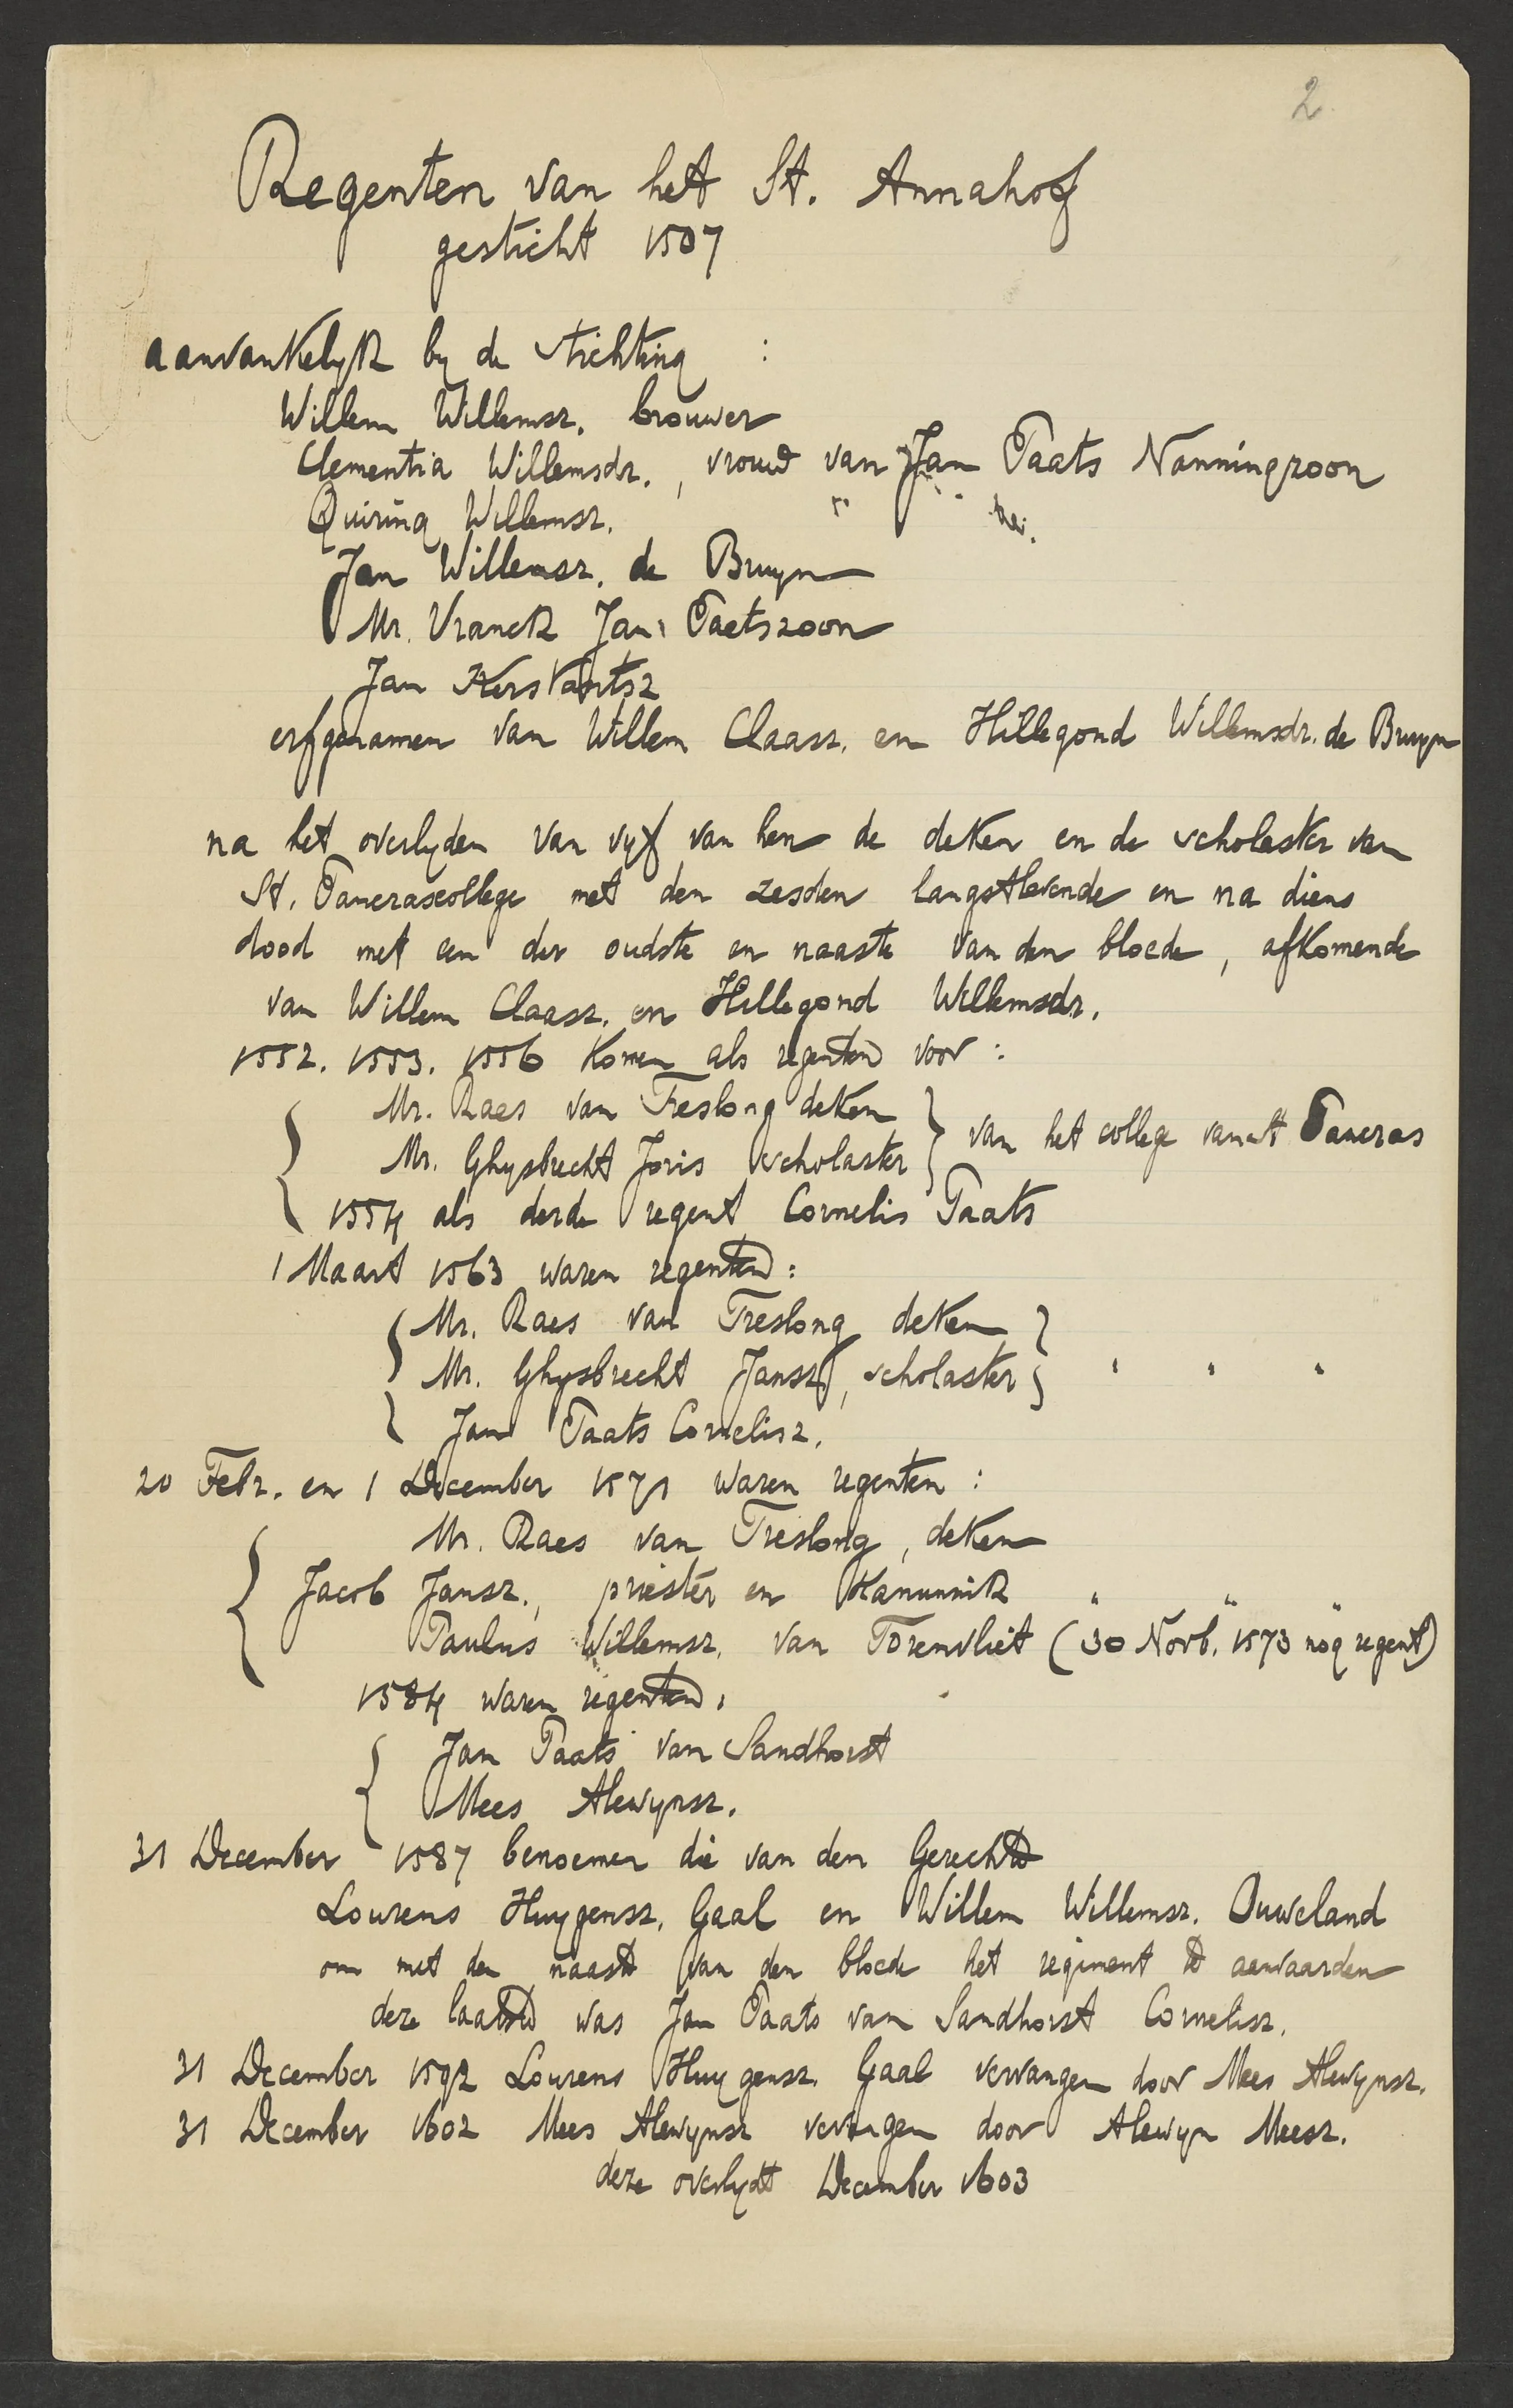 2
Regenten van het St. Annahof
gesticht 1507
aanvankelyk by de stichting :
Willem Willemsz. brouwer
Clementia Willemsdr., vrouw van Jan Paats Nanningzoon
Quiring Willemsz.
Jan Willemsz. de Bruyn
Mr. Vranck Jan Paetszoon
Jan Kerstantsz
erfgenamen van Willem Claasz. en Hillegond Willemsdr. de Bruyn
na het overlyden van vyf van hen de deken en de scholaster van
St. Pancrascollege met den zesden langstlevende en na diens
dood met een der oudste en naaste van den bloede, afkomende
van Willem Claasz. en Hillegond Willemsdr.
1552. 1553. 1556 komen als regenten voor :
Mr. Raes van Treslong deken
Mr. Ghysbrecht Joris scholaster } van het college van St Pancras
1554 als derde regent Cornelis Paats
1 Maart 1563 waren regenten :
Mr. Raes van Treslong deken
Mr. Ghysbrecht Jansz, scholaster } " " "
Jan Paats Cornelisz.
20 Febr. en 1 December 1571 waren regenten :
Mr. Raes van Treslong, deken
Jacob Jansz., priester en Kanunnik " " "
Paulus Willemsz. van Torenvliet (30 Novb. 1573 nog regent)
1584 waren regenten.
Jan Paats van Sandhorst
Mees Alewynsz.
31 December 1587 benoemen die van den Gerechte
Lourens Huygensz. Gaal en Willem Willemsz. Ouweland
om met den naaste van den bloede het regiment te aenvaarden
deze laatste was Jan Paats van Sandhorst Cornelisz.
31 December 1592 Lourens Huygensz. Gaal vervangen door Mees Alewynsz.
31 December 1602 Mees Alewynsz vervangen door Alewyn Meesz.
deze overlydt December 1603